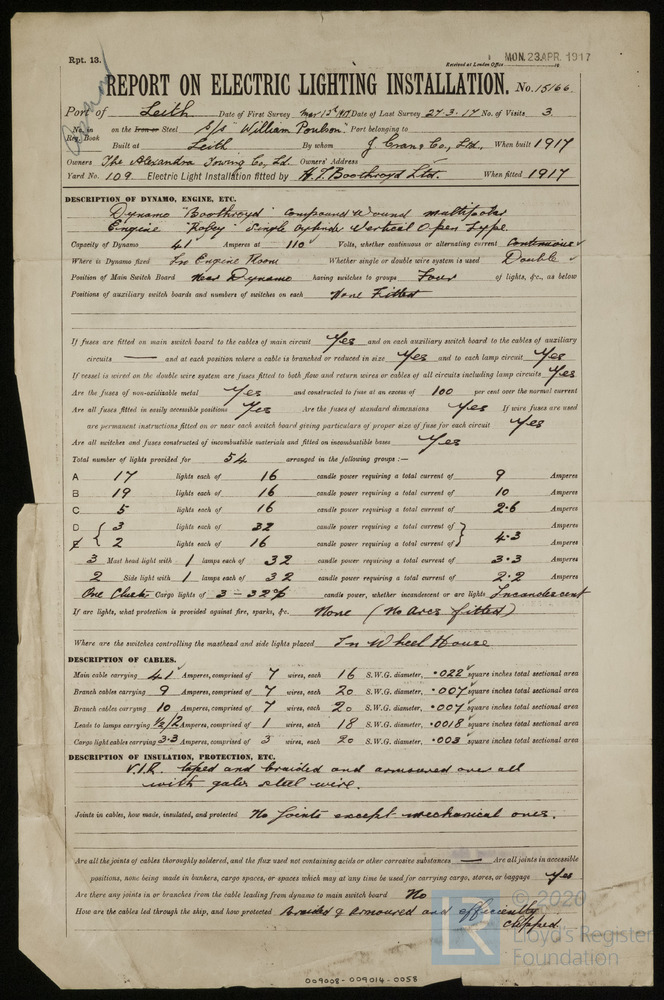 Rpt. 13.
Received at London Office MON. 23 APR. 1917
REPORT ON ELECTRIC LIGHTING INSTALLATION. No. 15166.
Port of Leith Date of First Survey Mar 12th 1917 Date of Last Survey 27-3-17 No. of Visits 3.
No. in Reg. Book on the Iron or Steel S/S "William Poulsom" Port belonging to
Built at Leith By whom J. Crans Co., Ltd., When built 1917
Owners The Alexandra Towing Co., Ld. Owners' Address
Yard No. 109 Electric Light Installation fitted by H. T. Boothroyd Ltd. When fitted 1917
DESCRIPTION OF DYNAMO, ENGINE, ETC.
Dynamo "Boothroyd" Compound Wound multipolar
Engine "Robey" Single Cylinder Vertical Open Type.
Capacity of Dynamo 41 Amperes at 110 Volts, whether continuous or alternating current Continuous
Where is Dynamo fixed In Engine Room Whether single or double wire system is used Double
Position of Main Switch Board Near Dynamo having switches to groups Four of lights, &c., as below
Positions of auxiliary switch boards and numbers of switches on each None Fitted
If fuses are fitted on main switch board to the cables of main circuit Yes and on each auxiliary switch board to the cables of auxiliary
circuits — and at each position where a cable is branched or reduced in size Yes and to each lamp circuit Yes
If vessel is wired on the double wire system are fuses fitted to both flow and return wires or cables of all circuits including lamp circuits Yes
Are the fuses of non-oxidizable metal Yes and constructed to fuse at an excess of 100 per cent over the normal current
Are all fuses fitted in easily accessible positions Yes Are the fuses of standard dimensions Yes If wire fuses are used
are permanent instructions fitted on or near each switch board giving particulars of proper size of fuse for each circuit Yes
Are all switches and fuses constructed of incombustible materials and fitted on incombustible bases Yes
Total number of lights provided for 54 arranged in the following groups :—
A 17 lights each of 16 candle power requiring a total current of 9 Amperes
B 19 lights each of 16 candle power requiring a total current of 10 Amperes
C 5 lights each of 16 candle power requiring a total current of 2.6 Amperes
D { 3 lights each of 32 candle power requiring a total current of } Amperes
2 lights each of 16 candle power requiring a total current of } 4.3 Amperes
3 Mast head light with 1 lamps each of 32 candle power requiring a total current of 3.3 Amperes
2 Side light with 1 lamps each of 32 candle power requiring a total current of 2.2 Amperes
One Cluster Cargo lights of 3 – 32 candle power, whether incandescent or arc lights Incandescent
If arc lights, what protection is provided against fire, sparks, &c. None (No Arcs fitted)
Where are the switches controlling the masthead and side lights placed In Wheel House
DESCRIPTION OF CABLES.
Main cable carrying 41 Amperes, comprised of 7 wires, each 16 S.W.G. diameter, .022 square inches total sectional area
Branch cables carrying 9 Amperes, comprised of 7 wires, each 20 S.W.G. diameter, .007 square inches total sectional area
Branch cables carrying 10 Amperes, comprised of 7 wires, each 20 S.W.G. diameter, .007 square inches total sectional area
Leads to lamps carrying 1/2/2 Amperes, comprised of 1 wires, each 18 S.W.G. diameter, .0018 square inches total sectional area
Cargo light cables carrying 3.3 Amperes, comprised of 3 wires, each 20 S.W.G. diameter, .003 square inches total sectional area
DESCRIPTION OF INSULATION, PROTECTION, ETC.
V.I.R. taped and braided and armoured over all
with galv steel wire.
Joints in cables, how made, insulated, and protected No Joints except mechanical ones.
Are all the joints of cables thoroughly soldered, and the flux used not containing acids or other corrosive substances — Are all joints in accessible
positions, none being made in bunkers, cargo spaces, or spaces which may at any time be used for carrying cargo, stores, or baggage Yes
Are there any joints in or branches from the cable leading from dynamo to main switch board No
How are the cables led through the ship, and how protected Braided & Armoured and efficiently
clipped.
© 2020
LR Lloyd's Register
Foundation
009008-009014-0058